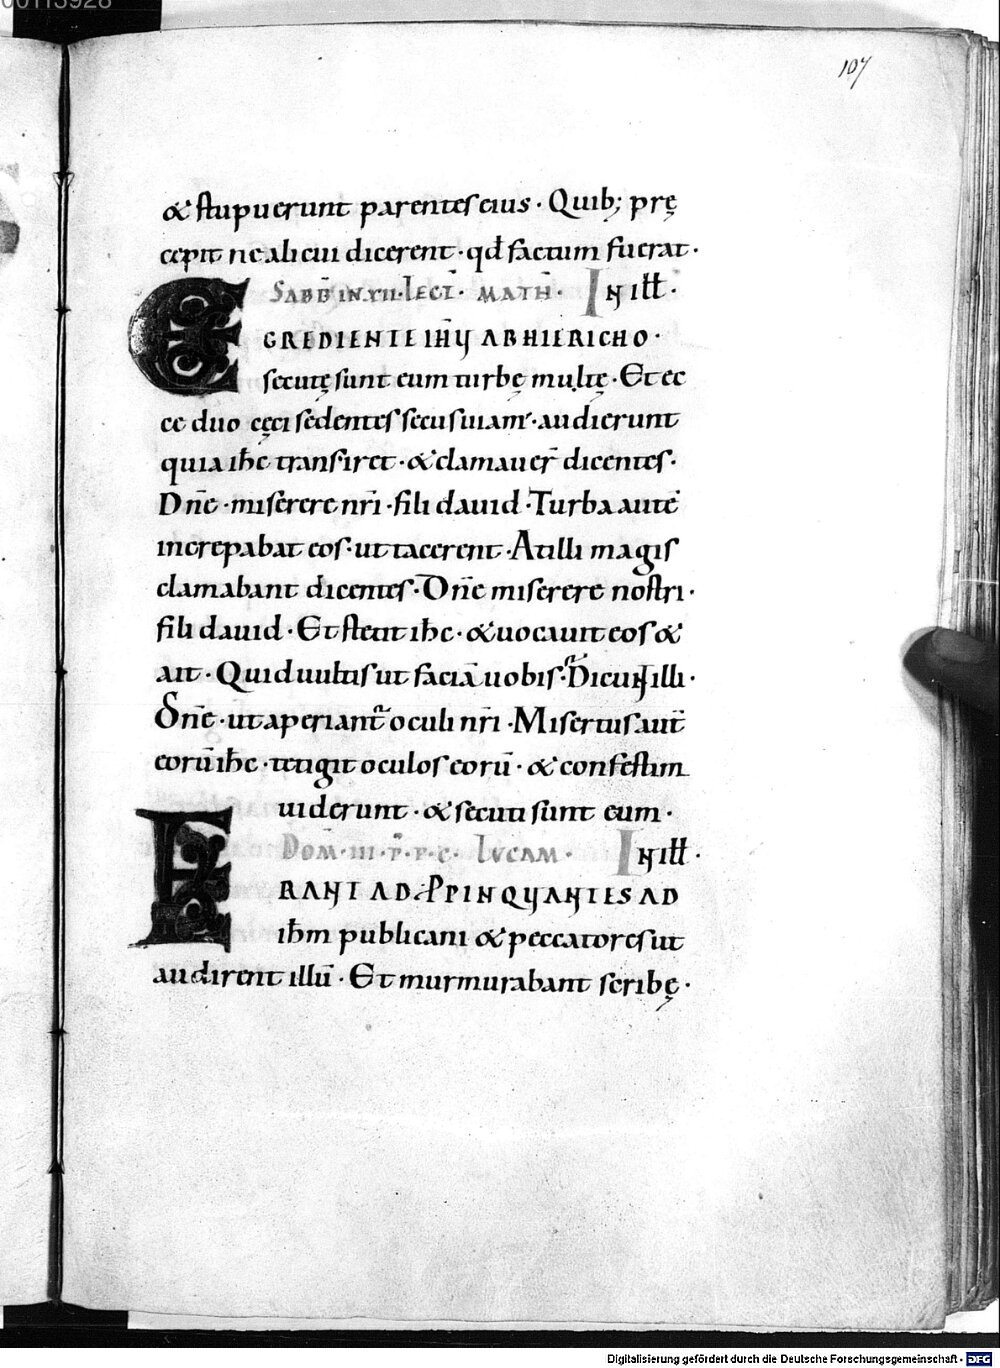 00113928
107
& stupuerunt parentes eius · Quib; pre̜
cepit ne alicui dicerent · qđ factum fuerat ·
SABB̄ IN XII · LECT̄ · MATH̄ · IN ill̄ ·
EGREDIENTE IHU AB HIERICHO ·
secute̜ sunt eum turbe̜ multe̜ · Et ec
ce duo ce̜ci sedentes secus uiam · audierunt
quia ihc̄ transiret · & clamauer̄ dicentes ·
Dn̄e · miserere nr̄i · fili dauid · Turba autē
increpabat eos · ut tacerent · At illi magis
clamabant dicentes · Dn̄e miserere nostri ·
fili dauid · Et stetit ihc̄ · & uocauit eos &
ait · Quid uultis ut faciā uobis · Dicunt illi ·
Dn̄e · ut aperiant^r oculi nr̄i · Misertus aut̄
eorū ihc̄ · tetigit oculos eorū · & confestim
uiderunt · & secuti sunt eum ·
DOM̄ · III · P̄ · P · C · LUCAM · IN ill̄ ·
ERANT ADPPINQUANTES AD
ihm̄ publicani & peccatores ut
audirent illū · Et murmurabant scribe̜ ·
Digitalisierung gefördert durch die Deutsche Forschungsgemeinschaft - DFG